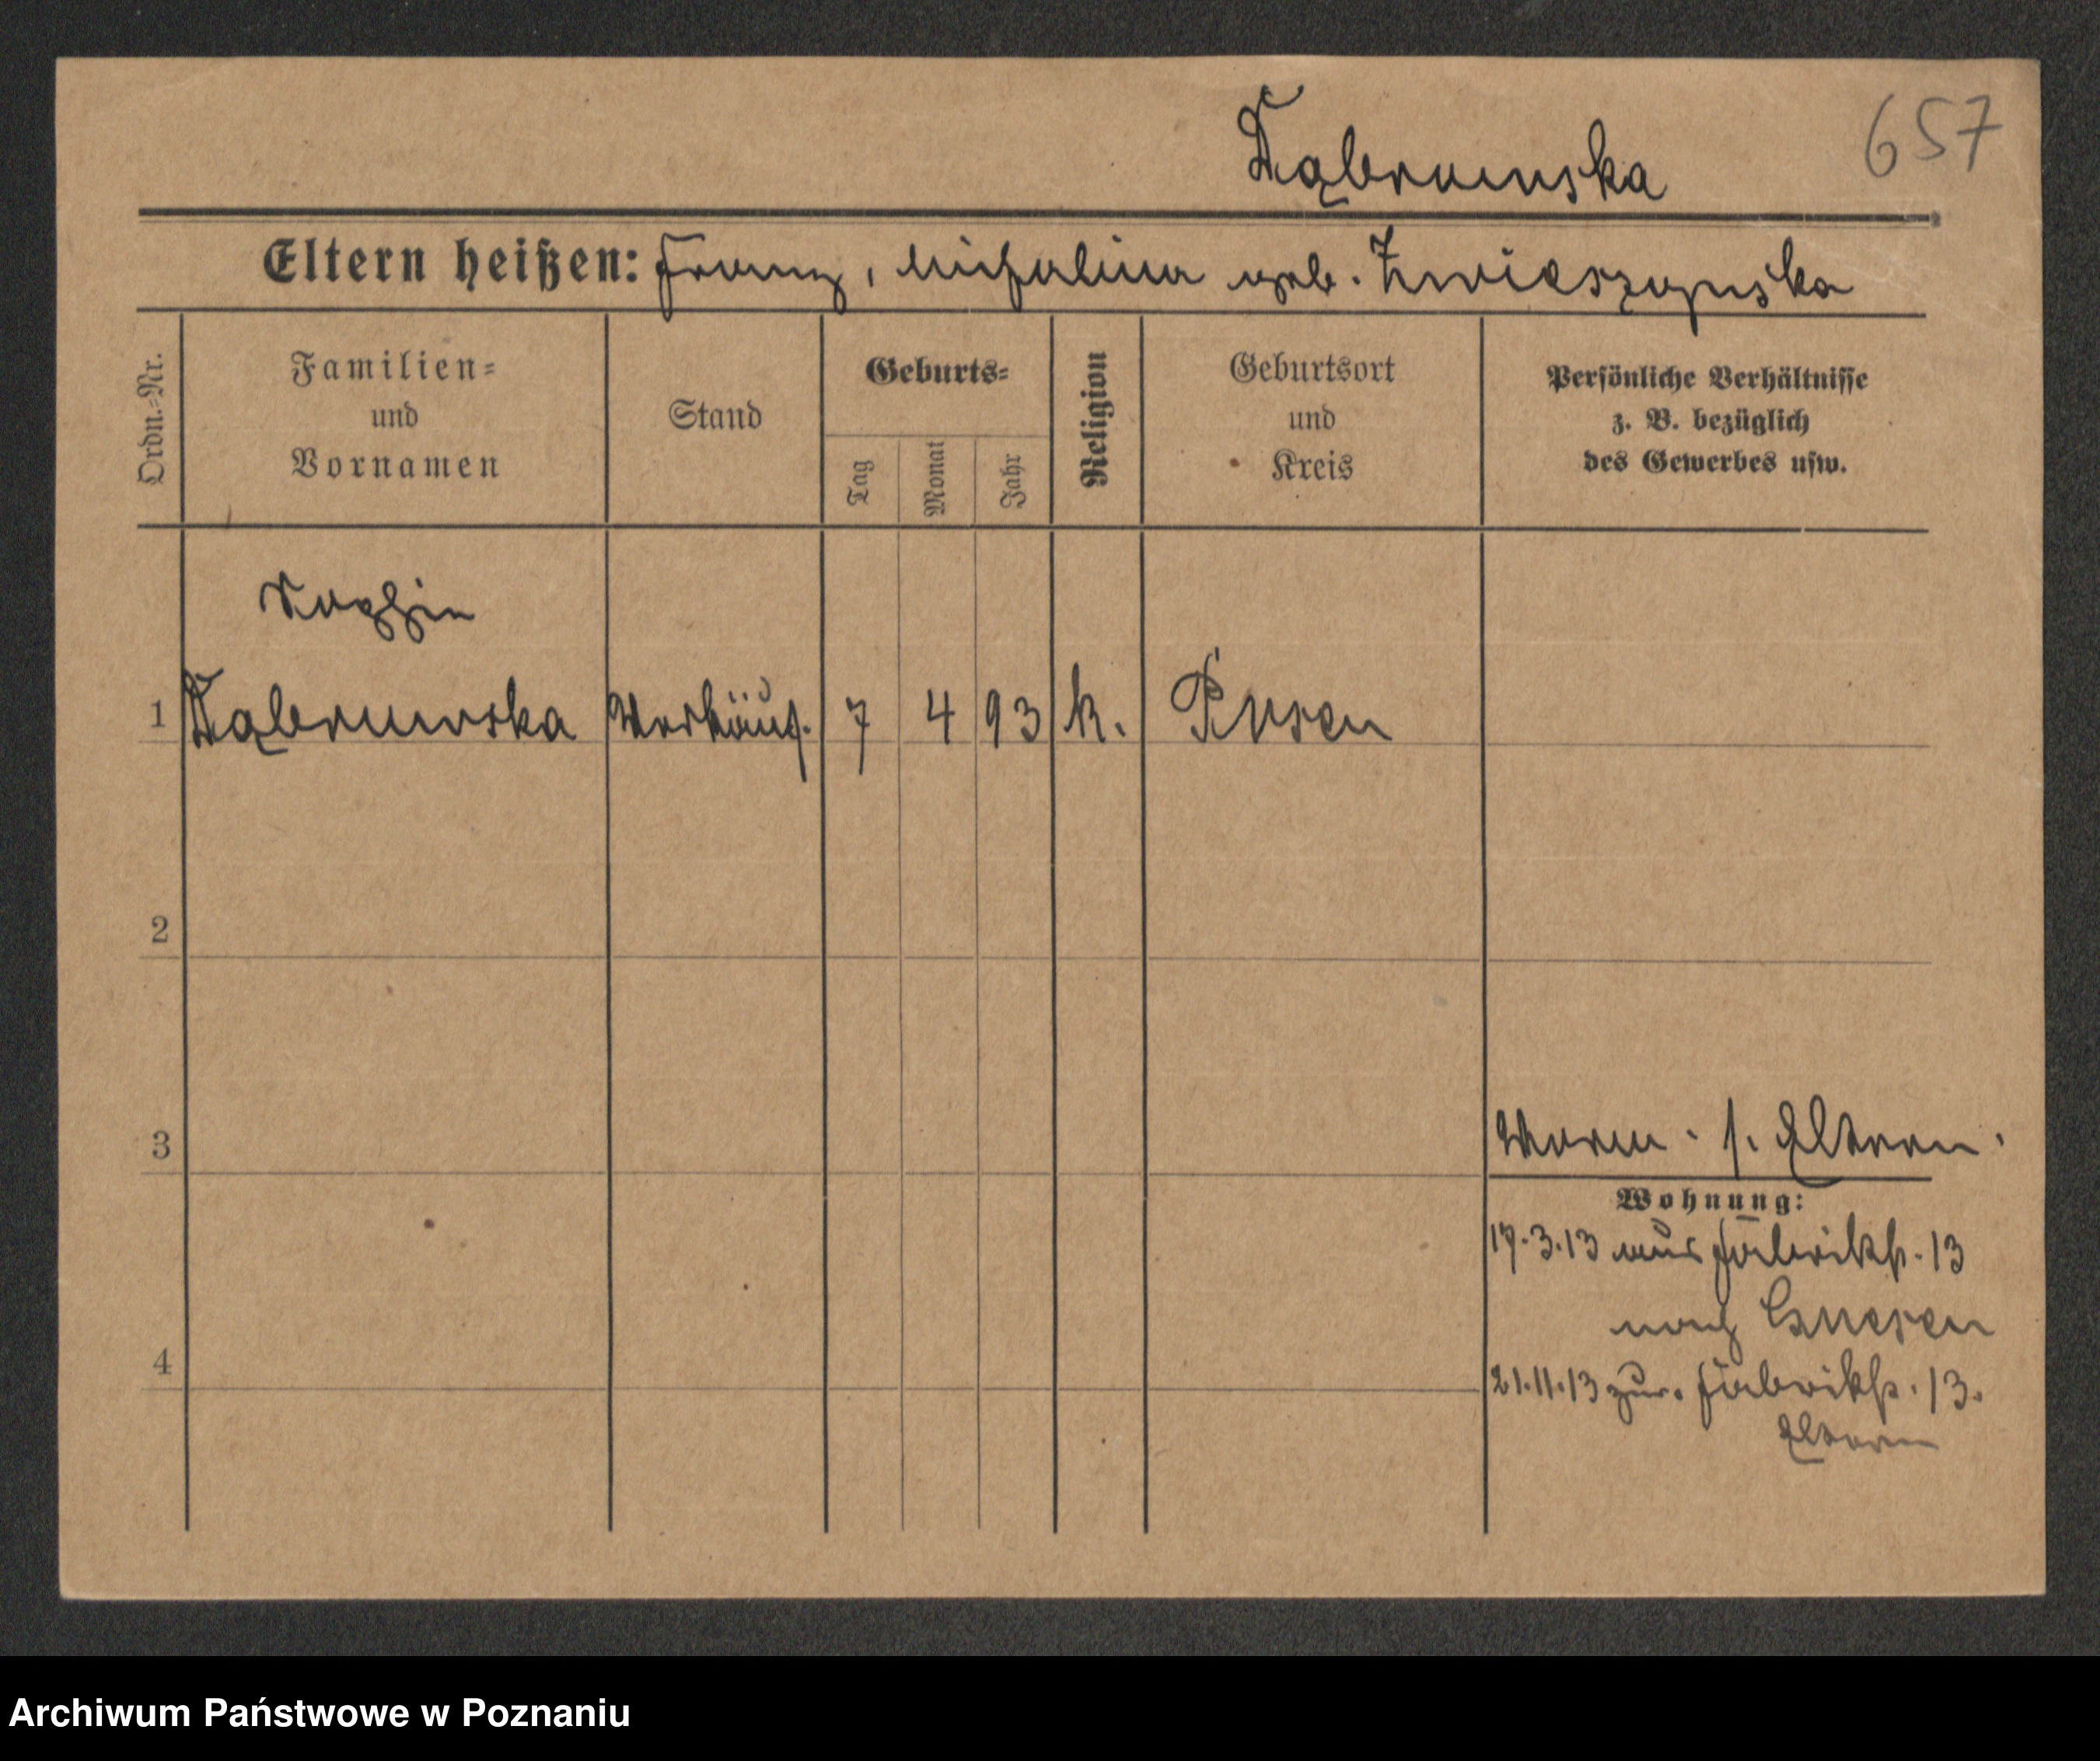 Dąbrowska
657
Eltern heißen: Franz, Michalina geb.
Ordn.=Nr.
Familien=
und
Vornamen
Stand
Geburts=
Tag
Monat
Jahr
Religion
Geburtsort
und
Kreis
Persönliche Verhältnisse
z. B. bezüglich
des Gewerbes usw.
1 Dąbrowska Verkäuf. 7 4 93 k. Posen
2
3
4
s. Eltern.
Wohnung:
17.3.13 aus Fabrikstr. 13
nach Gnesen
21.11.13 zur. Fabrikstr. 13.
Eltern
Archiwum Państwowe w Poznaniu